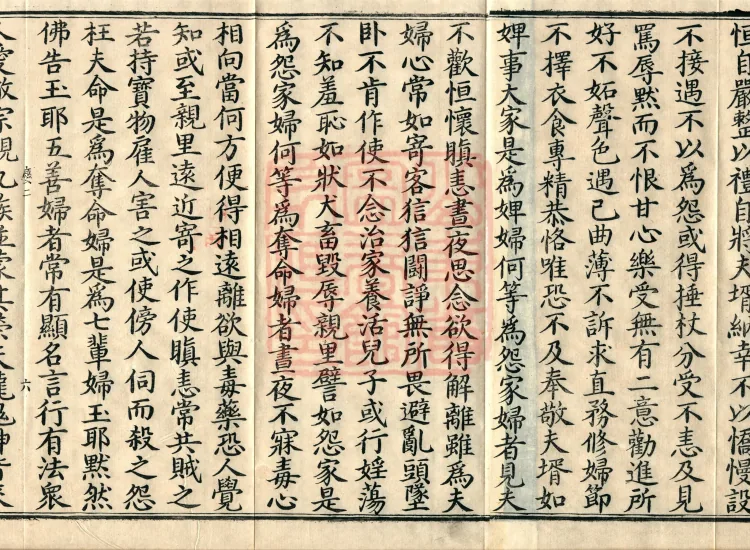 恒自嚴整以禮自將夫壻納幸不以憍慢設
不接遇不以爲怨或得捶杖分受不恚及見
罵辱默而不恨甘心樂受無有二意勸進所
好不妬聲色遇己曲薄不訴求直務修婦節
不擇衣食專精恭恪唯恐不及奉敬夫壻如
婢事大家是爲婢婦何等爲怨家婦者見夫
不歡恒懷瞋恚晝夜思念欲得解離雖爲夫
婦心常如寄客狺狺鬪諍無所畏避亂頭墜
臥不肯作使不念治家養活兒子或行婬蕩
不知羞恥如狀犬畜毀辱親里譬如怨家是
爲怨家婦何等爲奪命婦者晝夜不寐毒心
相向當何方便得相遠離欲與毒藥恐人覺
知或至親里遠近寄之作使瞋恚常共賊之
若持寶物雇人害之或使傍人伺而殺之怨
枉夫命是爲奪命婦是爲七輩婦玉耶默然
佛告玉耶五善婦者常有顯名言行有法衆
六
人愛敬宗親九族並蒙其榮天龍鬼神皆來